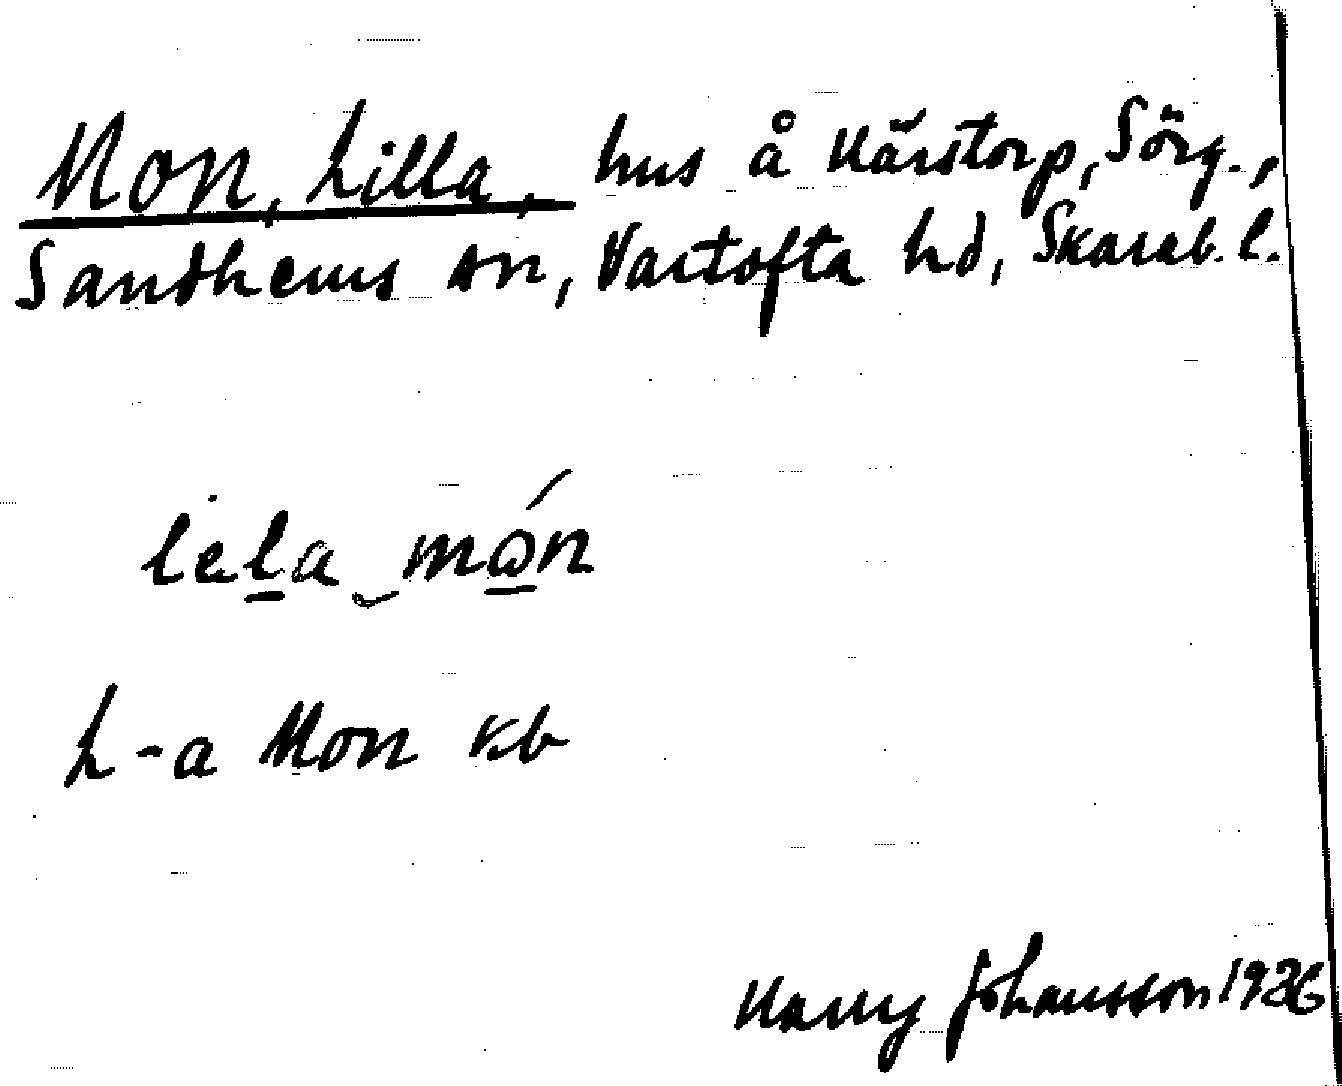 Mon, Lilla, hus å Kärstorp, Sörg.,
Sandhems sn, Vartofta hd, Skarab. l.
lela mɷ́n
L-a Mon kb
Harry Johansson 1926